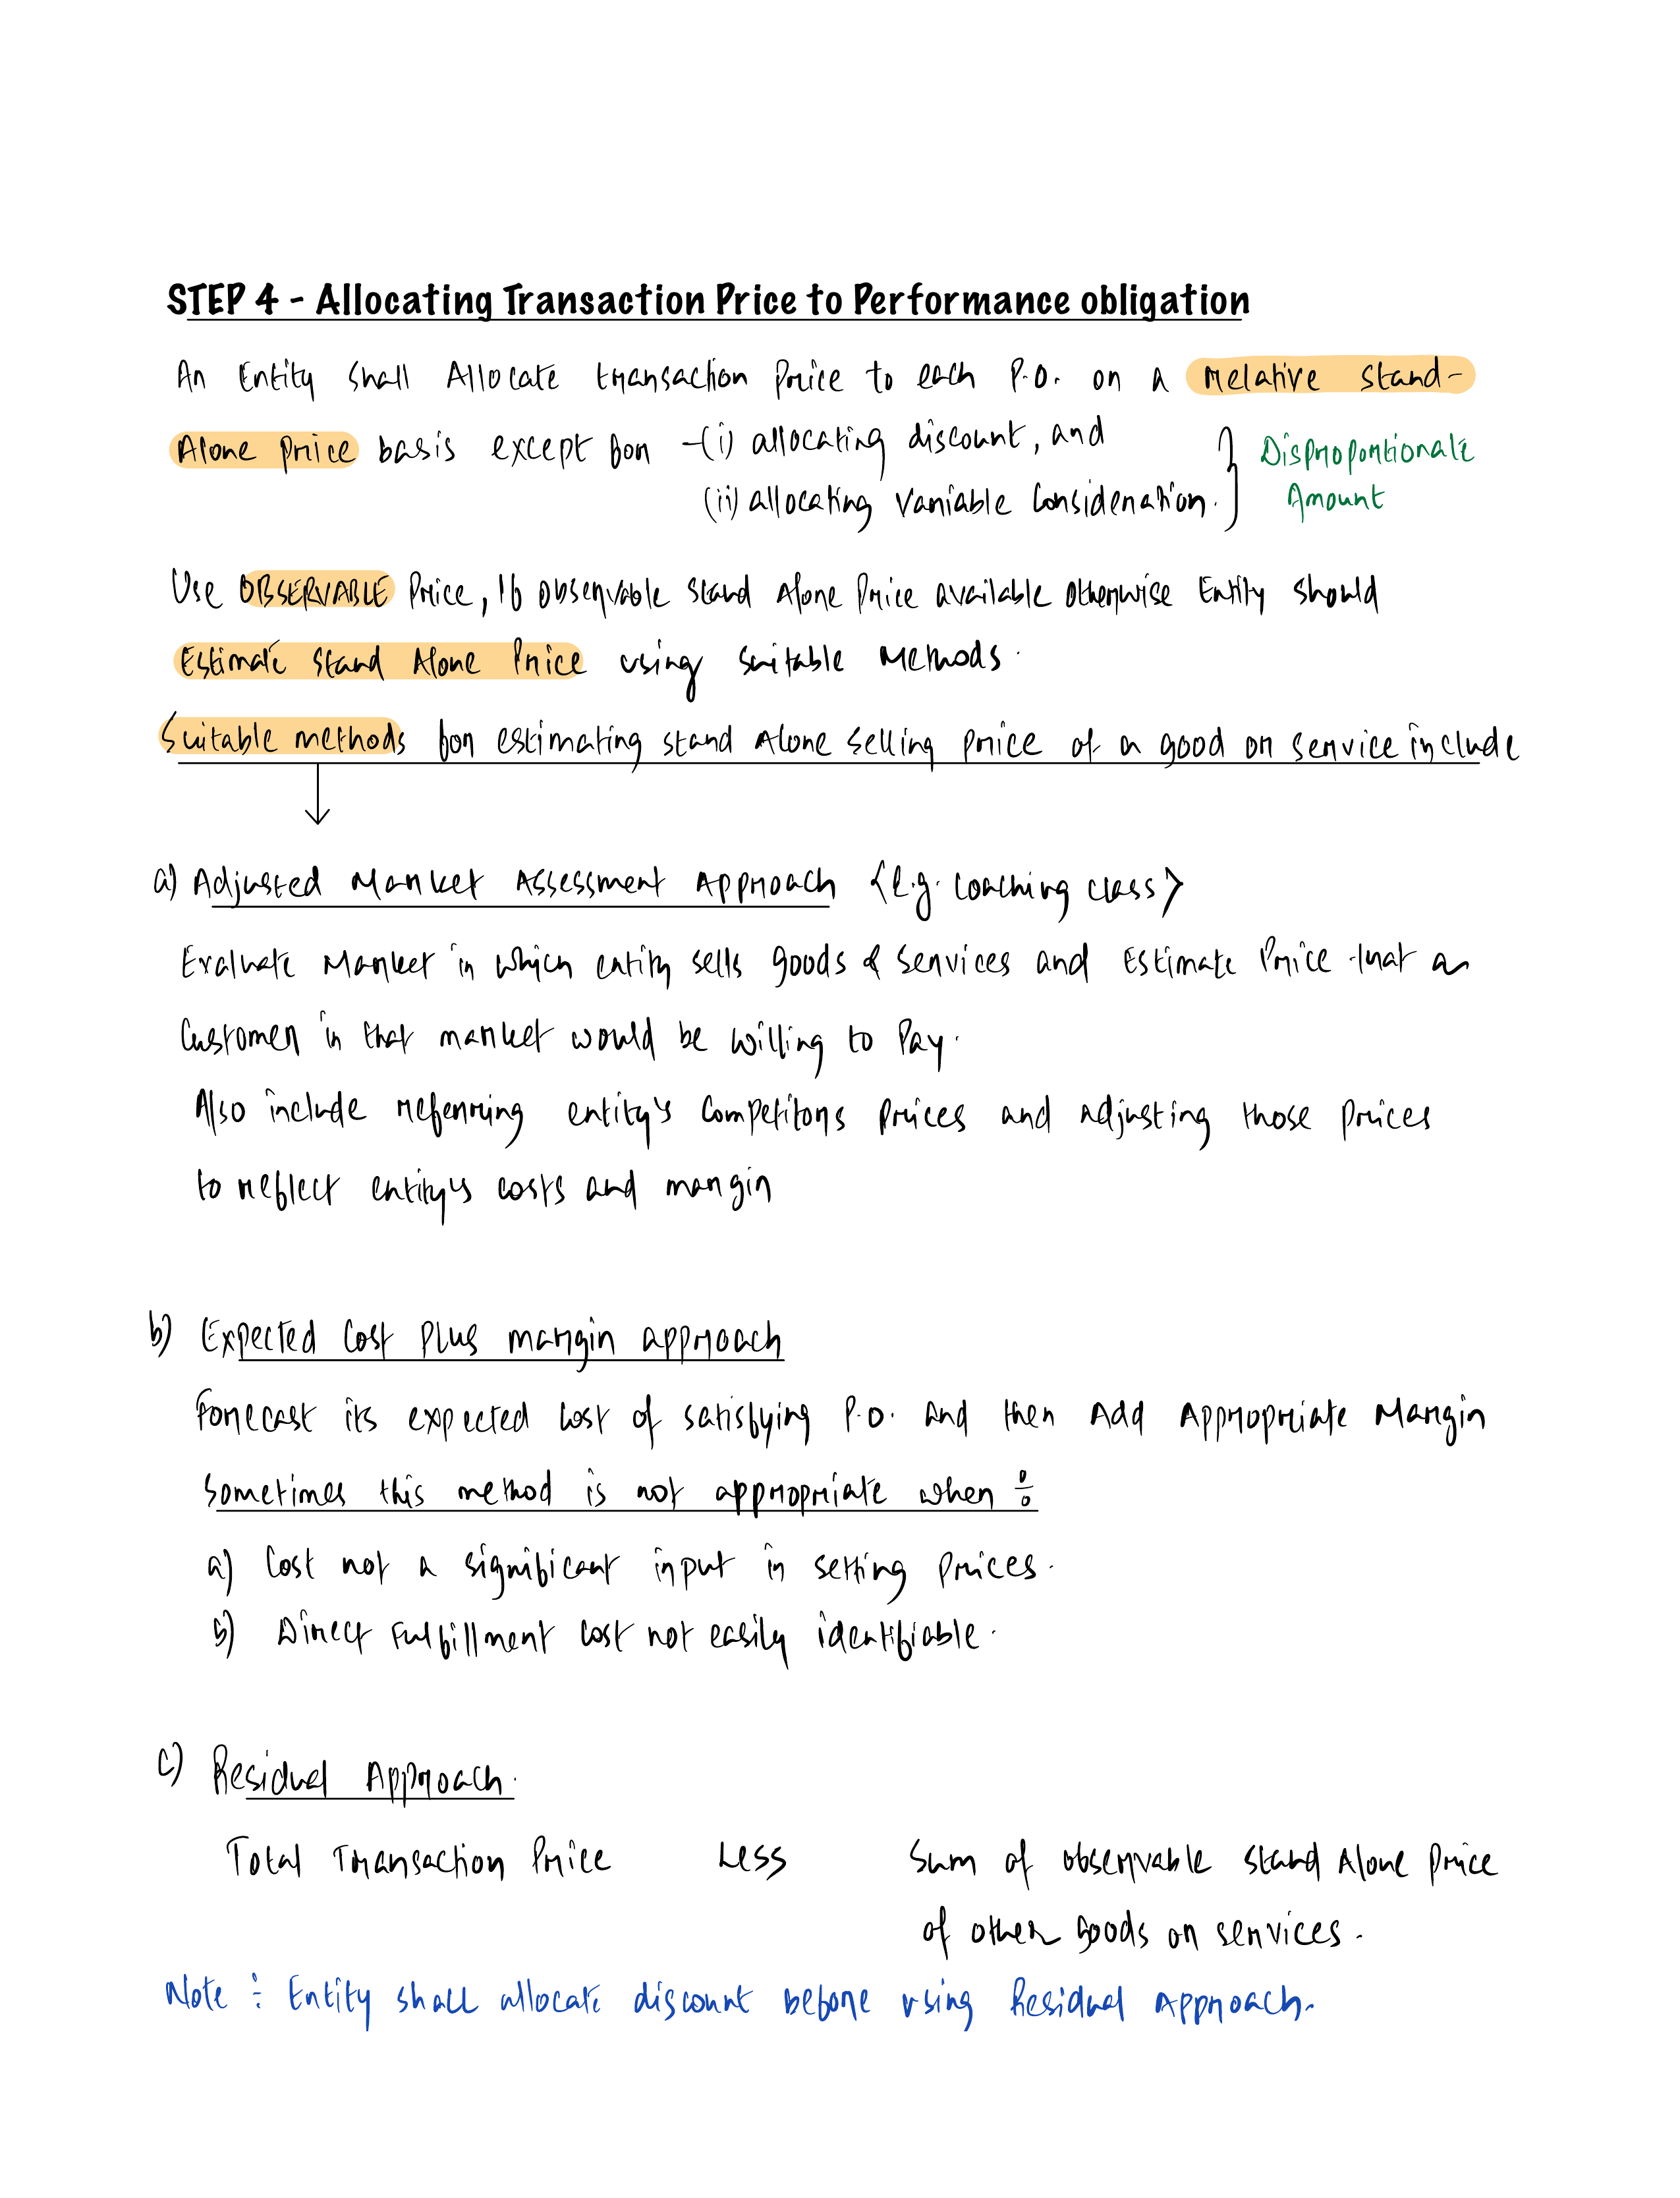 STEP 4 - Allocating Transaction Price to Performance obligation
An Entity shall Allocate transaction price to each P.O. on a relative stand-
Alone price basis except for - (i) allocating discount, and
(ii) allocating variable consideration. } Disproportionate
Amount
Use OBSERVABLE Price, If observable stand Alone Price available otherwise Entity should
Estimate stand Alone Price using suitable methods.
Suitable methods for estimating stand Alone selling price of a good or service include
a) Adjusted Market Assessment Approach <e.g. coaching class>
Evaluate Market in which entity sells goods & services and Estimate Price that a
Customer in that market would be willing to Pay.
Also include referring entity's competitors prices and adjusting those prices
to reflect entity's costs and margin
b) Expected Cost Plus margin approach
Forecast its expected cost of satisfying P.O. and then Add Appropriate Margin
Sometimes this method is not appropriate when ÷
a) Cost not a significant input in setting prices.
b) Direct Fulfillment cost not easily identifiable.
c) Residual Approach.
Total Transaction Price Less Sum of observable stand Alone price
of other goods or services.
Note ÷ Entity shall allocate discount before using Residual Approach.